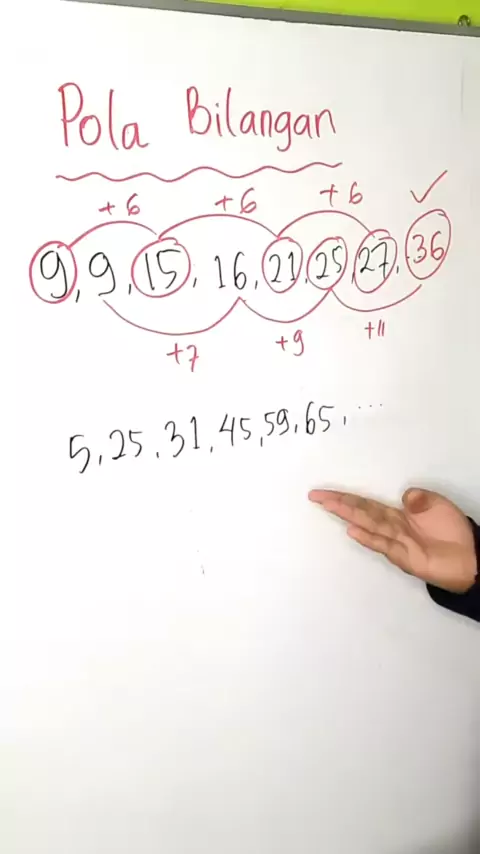 Pola Bilangan
+6 +6 +6
9, 9, 15, 16, 21, 25, 27, 36
+7 +9 +11
5, 25, 31, 45, 59, 65, ...